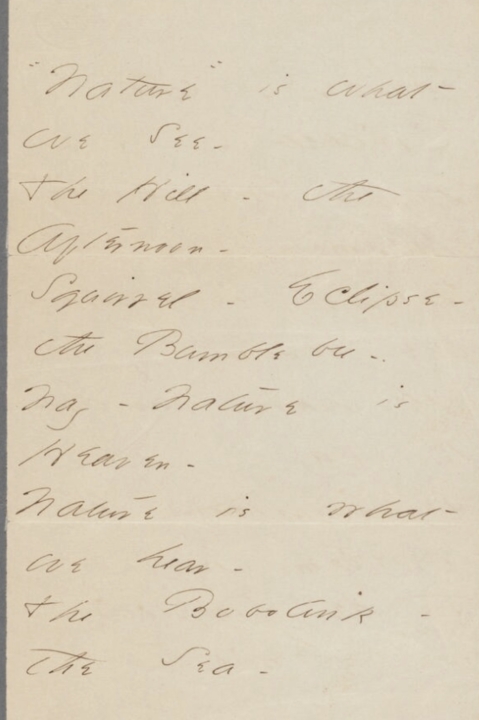 "Nature" is what
we see -
The Hill - the
Afternoon -
Squirrel - Eclipse -
the Bumble bee -
Nay - Nature is
Heaven -
Nature is what
we hear -
The Bobolink -
the Sea -